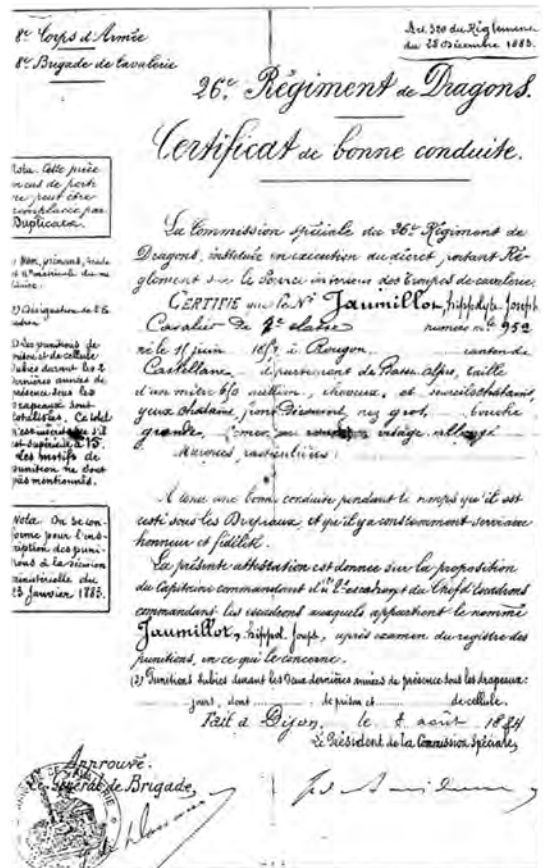 8e Corps d'Armée
8e Brigade de Cavalerie
Art. 320 du Règlement
du 28 Décembre 1883.
26e Régiment de Dragons.
Certificat de bonne conduite.
Nota. Cette pièce
en cas de perte
ne peut être
remplacée par
Duplicata.
1) Nom, prénoms, grade
et No matricule du
2) Désignation de l'Es
cadron
Les punitions de
et de cellule
subies durant les 2
dernières années de
présence sous les
drapeaux sont
totalisées. Ce total
n'est inscrit que s'il
est supérieur à 15.
Les motifs de
punition ne sont
pas mentionnés.
Nota. On se con-
forme pour l'ins-
cription des puni-
tions à la décision
ministérielle du
23 Janvier 1883.
La Commission spéciale du 26e Régiment de
Dragons, instituée en exécution du décret, portant Rè-
glement sur le Service intérieur des Troupes de cavalerie.
CERTIFIE que le Né Jaumillot, hippolyte Joseph
Cavalier de 2e classe numéro mle 952
né le 11 juin 1857 à Rougon canton de
Castellane département de Basses alpes, taille
d'un mètre 610 millim, cheveux, et sourcils châtains,
yeux châtains, front Découvert, nez gros, bouche
grande, menton visage allongé
Marques particulières :
A tenu une bonne conduite pendant le temps qu'il est
resté sous les Drapeaux, et qu'il y a constamment servi avec
honneur et fidélité.
La présente attestation est donnée sur la proposition
du Capitaine commandant le 2e escadron et du Chef d'Escadrons
commandant les escadrons auxquels appartient le nommé
Jaumillot, hippol. Joseph, après examen du registre des
punitions, en ce qui le concerne.
(2) Punitions subies durant les deux dernières années de présence sous les drapeaux:
jours, dont de prison et de cellule.
Fait à Dijon, le 8 août 1884
Le Président de la Commission Spéciale,
Approuvé.
Le Général de Brigade,